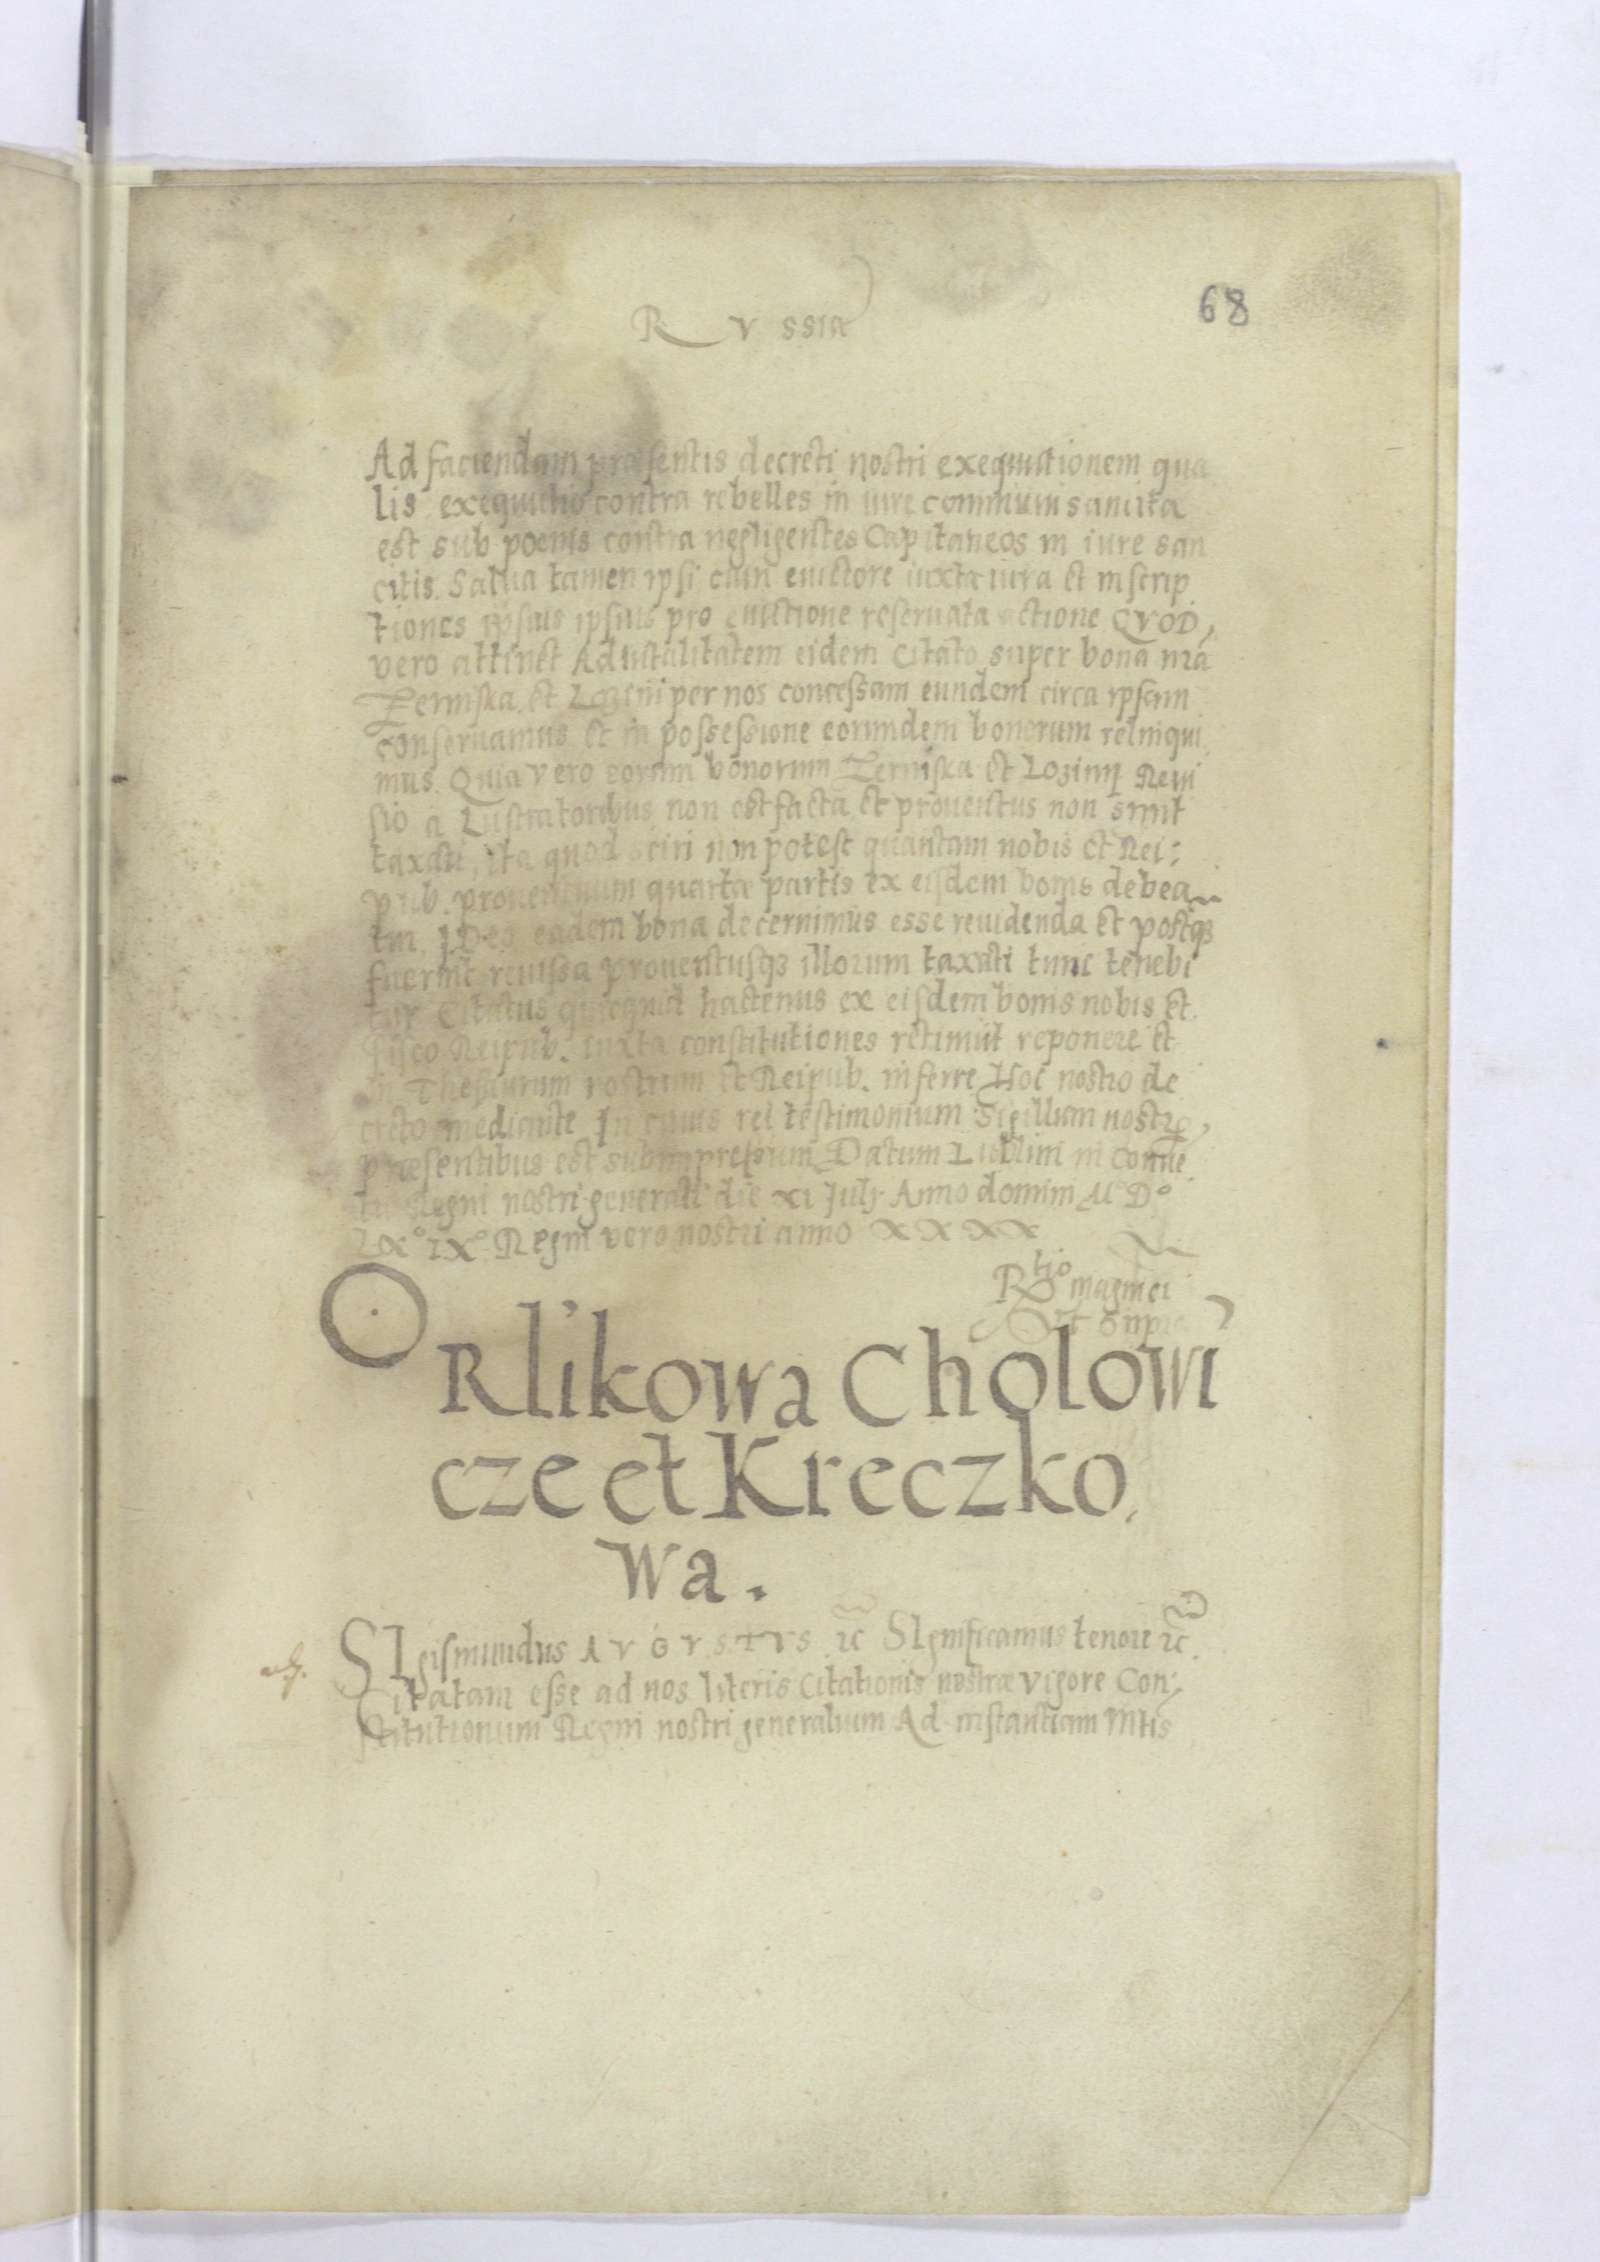 Rvssia
68
Ad faciendam præsentis decreti nostri exequutionem qua
lis exequutio contra rebelles in iure communi sancita
est sub poenis contra negligentes Capitaneos in iure san
citis. Salua tamen ipsi cum euictore iuxta iura et inscrip
tiones ipsius ipsius pro euictione reseruata actione QVOD,
vero attinet Aduitalitatem eidem Citato super bona nra
Zerniska et Lozini per nos concessam eundem circa ipsam
conseruamus et in possessione eorundem bonorum relinqui
mus. Quia vero eorum bonorum Zerniska et Lozinij Reui
sio a Lustratoribus non est facta et prouentus non sunt
taxati, ita quod sciri non potest quantam nobis et Rei:
pub. prouentuum quartæ partis ex eisdem bonis debea
tur. Ideo eadem bona decernimus esse reuidenda et postqz
fuerint reuissa prouentusqz illorum taxati tunc tenebi
tur Citatus quicquid hactenus ex eisdem bonis nobis et
Fisco Reipub. iuxta constitutiones retinuit reponere et
in Thesaurum nostrum et Reipub. inferre Hoc nostro de
creto mediante In cuius rei testimonium Sigillum nostrū
præsentibus est subimpressum Datum Lublini in Conue
tu Regni nostri generali die xi Julij Anno domini M° D°
LX° IX° Regni vero nostri anno XXXX
Rtio magnici
Vt supra
ORlikowa Cholowi
cze et Kreczko,
wa.
SIgismundus AVGVSTVS ıc̃ SIgnificamus tenore ıc̃.
Citatam esse ad nos literis Citationis nostræ vigore Con:
stitutionum Regni nostri generalium Ad instantiam Mtis